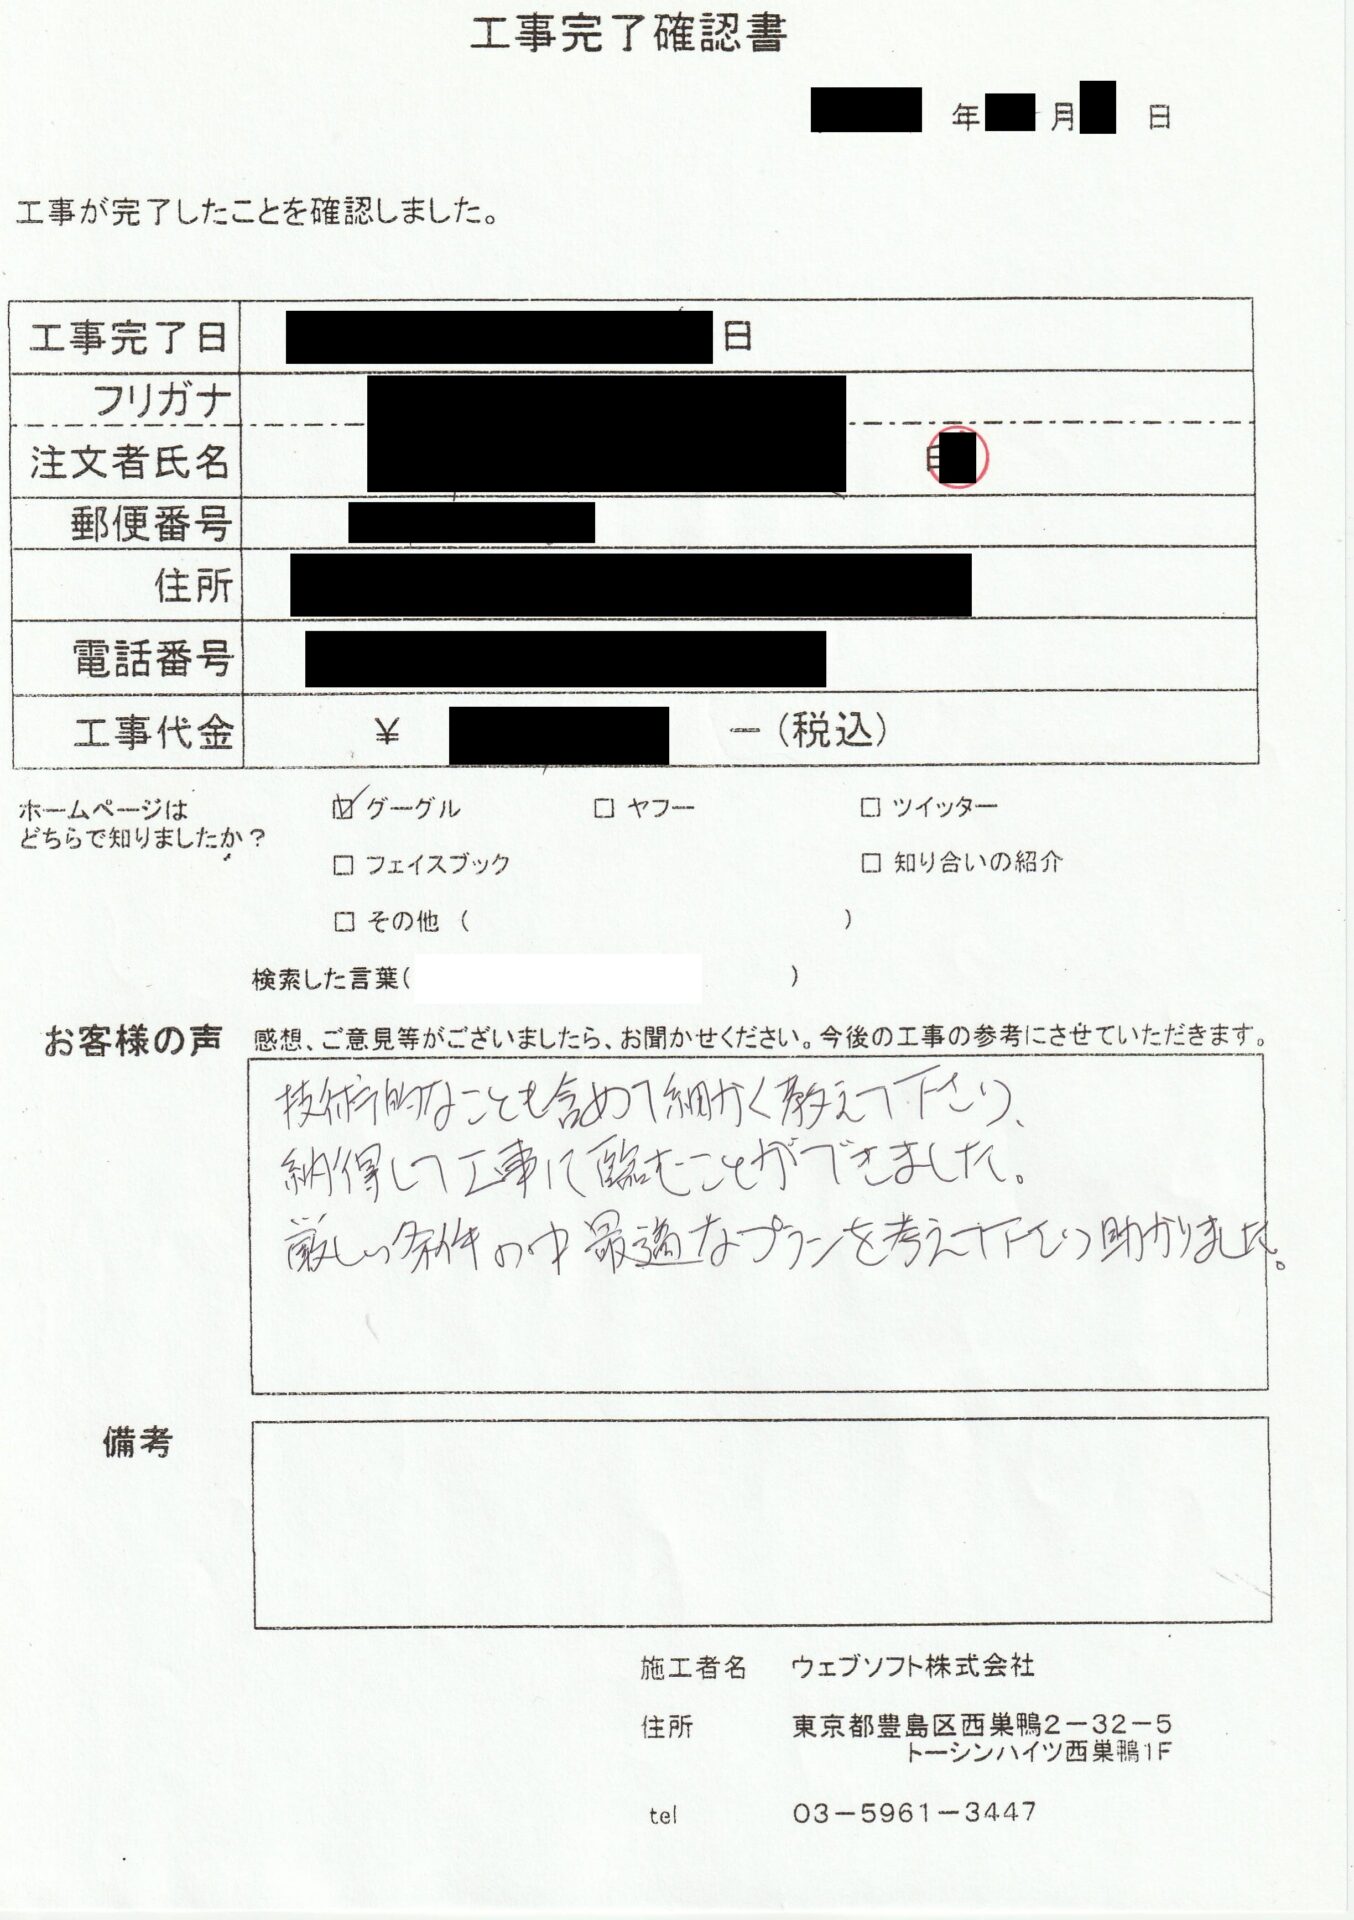 工事完了確認書
年 月 日
工事が完了したことを確認しました。
工事完了日 日
フリガナ
注文者氏名
郵便番号
住所
電話番号
工事代金 ¥ ー(税込)
ホームページは
どちらで知りましたか?
☑ グーグル □ ヤフー □ ツイッター
□ フェイスブック □ 知り合いの紹介
□ その他 ( )
検索した言葉( )
お客様の声 感想、ご意見等がございましたら、お聞かせください。今後の工事の参考にさせていただきます。
技術的なことも含めて細かく教えて下さり、
納得して工事に臨むことができました。
厳しい条件の中最適なプランを考えて下さり助かりました。
備考
施工者名 ウェブソフト株式会社
住所 東京都豊島区西巣鴨2-32-5
トーシンハイツ西巣鴨1F
tel 03-5961-3447